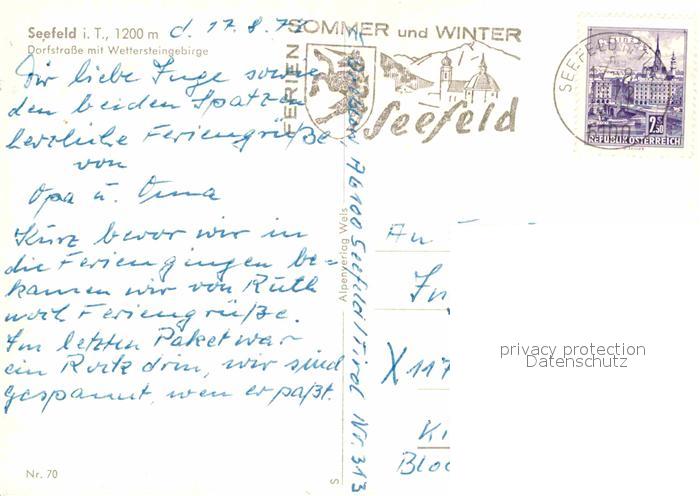 Seefeld i. T., 1200 m
Dorfstraße mit Wettersteingebirge
d. 17.8.71
Dir liebe Inge sowie
den beiden Spatzen
herzliche Feriengrüße
von
Opa u. Oma
Kurz bevor wir in
die Ferien gingen be-
kamen wir von Ruth
noch Feriengrüße.
Im letzten Paket war
ein Rock drin, wir sind
gespannt, wem er paßt.
Nr. 70
FERIEN
SOMMER und WINTER
Seefeld
A 6100 Seefeld / Tirol Nr. 313
Alpenverlag Wels
S
SEEFELD IN T
LINZ
2.50
REPUBLIK ÖSTERREICH
An
In
X 117
K
Bloc
privacy protection
Datenschutz